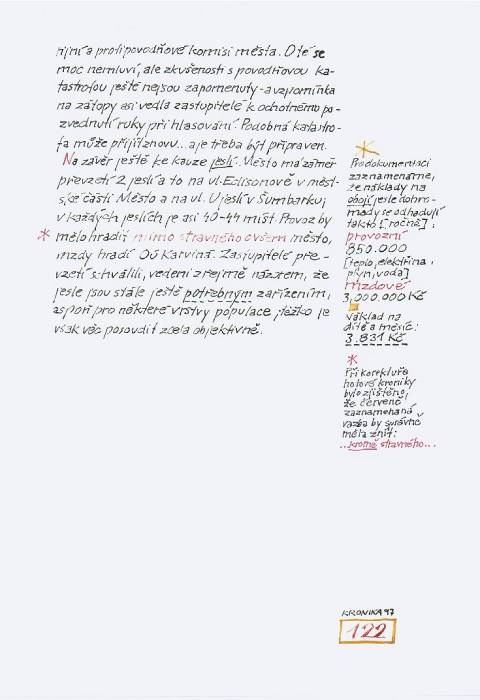 ními a protipovodňové komisi města. O té se
moc nemluví, ale zkušenosti s povodňovou ka-
tastrofou ještě nejsou zapomenuty - a vzpomínka
na zátopy asi vedla zastupitele k ochotnému po-
zvednutí ruky při hlasování. Podobná katastro-
fa může přijít znovu... a je třeba být připraven.
Na závěr ještě ke kauze jeslí. Město má záměr
převzetí 2 jeslí a to na ul. Edisonově v měst-
ské části Město a na ul. U jeslí v Šumbarku;
v každých jeslích je asi 40-44 míst. Provoz by
* mělo hradit mimo stravného ovšem město,
mzdy hradí OÚ Karviná. Zastupitelé pře-
vzetí schválili, vedeni zřejmě názorem, že
jesle jsou stále ještě potřebným zařízením,
aspoň pro některé vrstvy populace; těžko je
však věc posoudit zcela objektivně.
Pro dokumentaci
zaznamenáme,
že náklady na
obojí jesle dohro-
mady se odhadují
takto [ročně]:
provozní
850.000
[teplo, elektřina,
plyn, voda]
mzdové
3,000.000 Kč
Náklad na
dítě a měsíc:
3.831 Kč
*
Při korektuře
hotové kroniky
bylo zjištěno,
že červeně
zaznamenaná
vazba by správně
měla znít:
...kromě stravného...
KRONIKA 97
122